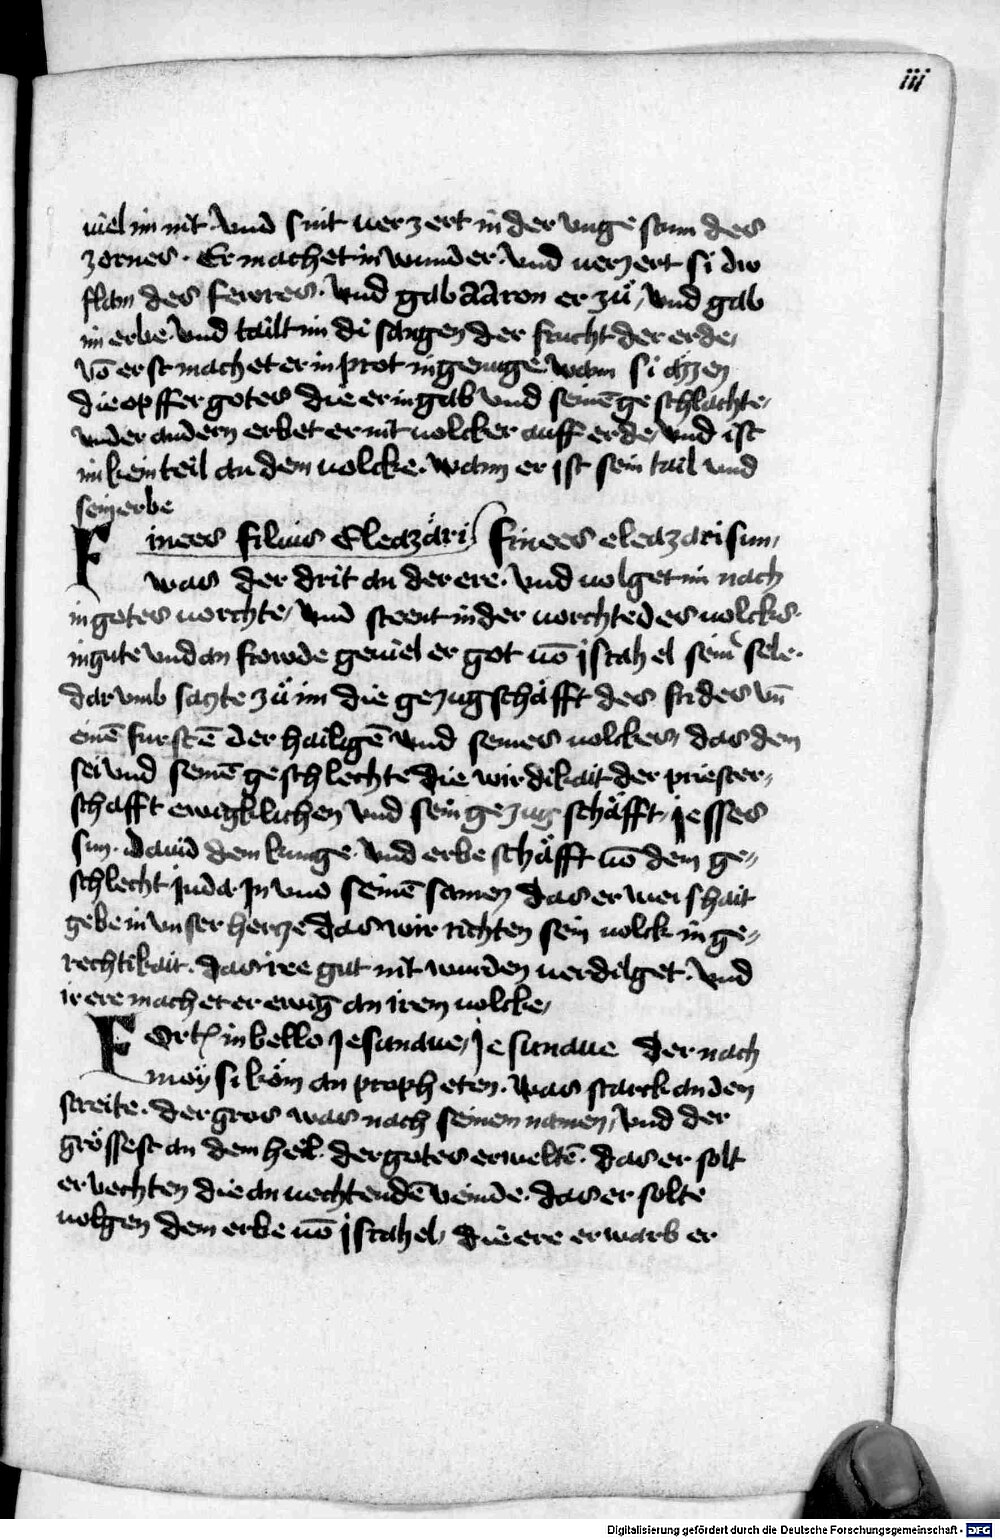 iii
uiel im nit. Vnd sint uerzert in der vnge stum des
zornes. Er machet in wunder. Vnd uerzert si diw
flam des fewres. Vnd gab Aaron er zů, Vnd gab
im erbe. Vnd tailt im di sangen der frucht der erde,
vō erst machet er in prot in genuge. wann si ezzen
die opffer gotes die er in gab Vnd seinē geschlächte,
vnder andern erbet er nit uolcker auff erde, Vnd ist
im kein teil an dem uolcke. wann er ist sein tail vnd
sein erbe
Finees filius Eleazari finees eleazari sun,
was der drit an der ere. Vnd uolget im nach
in gotes uorchte, Vnd steent in der uorchte des uolckes.
in gute vnd an frowde geuiel er got uō israhel seinr sele.
dar vmb sagte zů im die gezugschäfft des frides vñ
einē furstē der hailigē Vnd seines uolckes, das den
sei vnd seinē geschlechte die wirdikait der priester,
schafft ewigklichen Vnd sein gezugschäfft, jesses
sun. dauid dem kunge. Vnd erbe schäfft uō dem ge,,
schlecht juda. In vnd seinē samen das er weishait
gebe in vnser hercze das wir richten sein uolck in ge,,
rechtikait. das iree gut nit wurden uerdilget. Vnd
ir ere machet er ewig an irem uolcke,
Fort in bello Jesunaue, Jesunaue der nach
moysi kom an propheten. Was starck an den
streite. der gros was nach seinem namen, Vnd der
grössest an dem heil. der gotes erweltē. das er solt
er vechten die an uechtendē veinde. das er solte
uolgen dem erbe uō israhel, die ere erwarb er
Digitalisierung gefördert durch die Deutsche Forschungsgemeinschaft - DFG